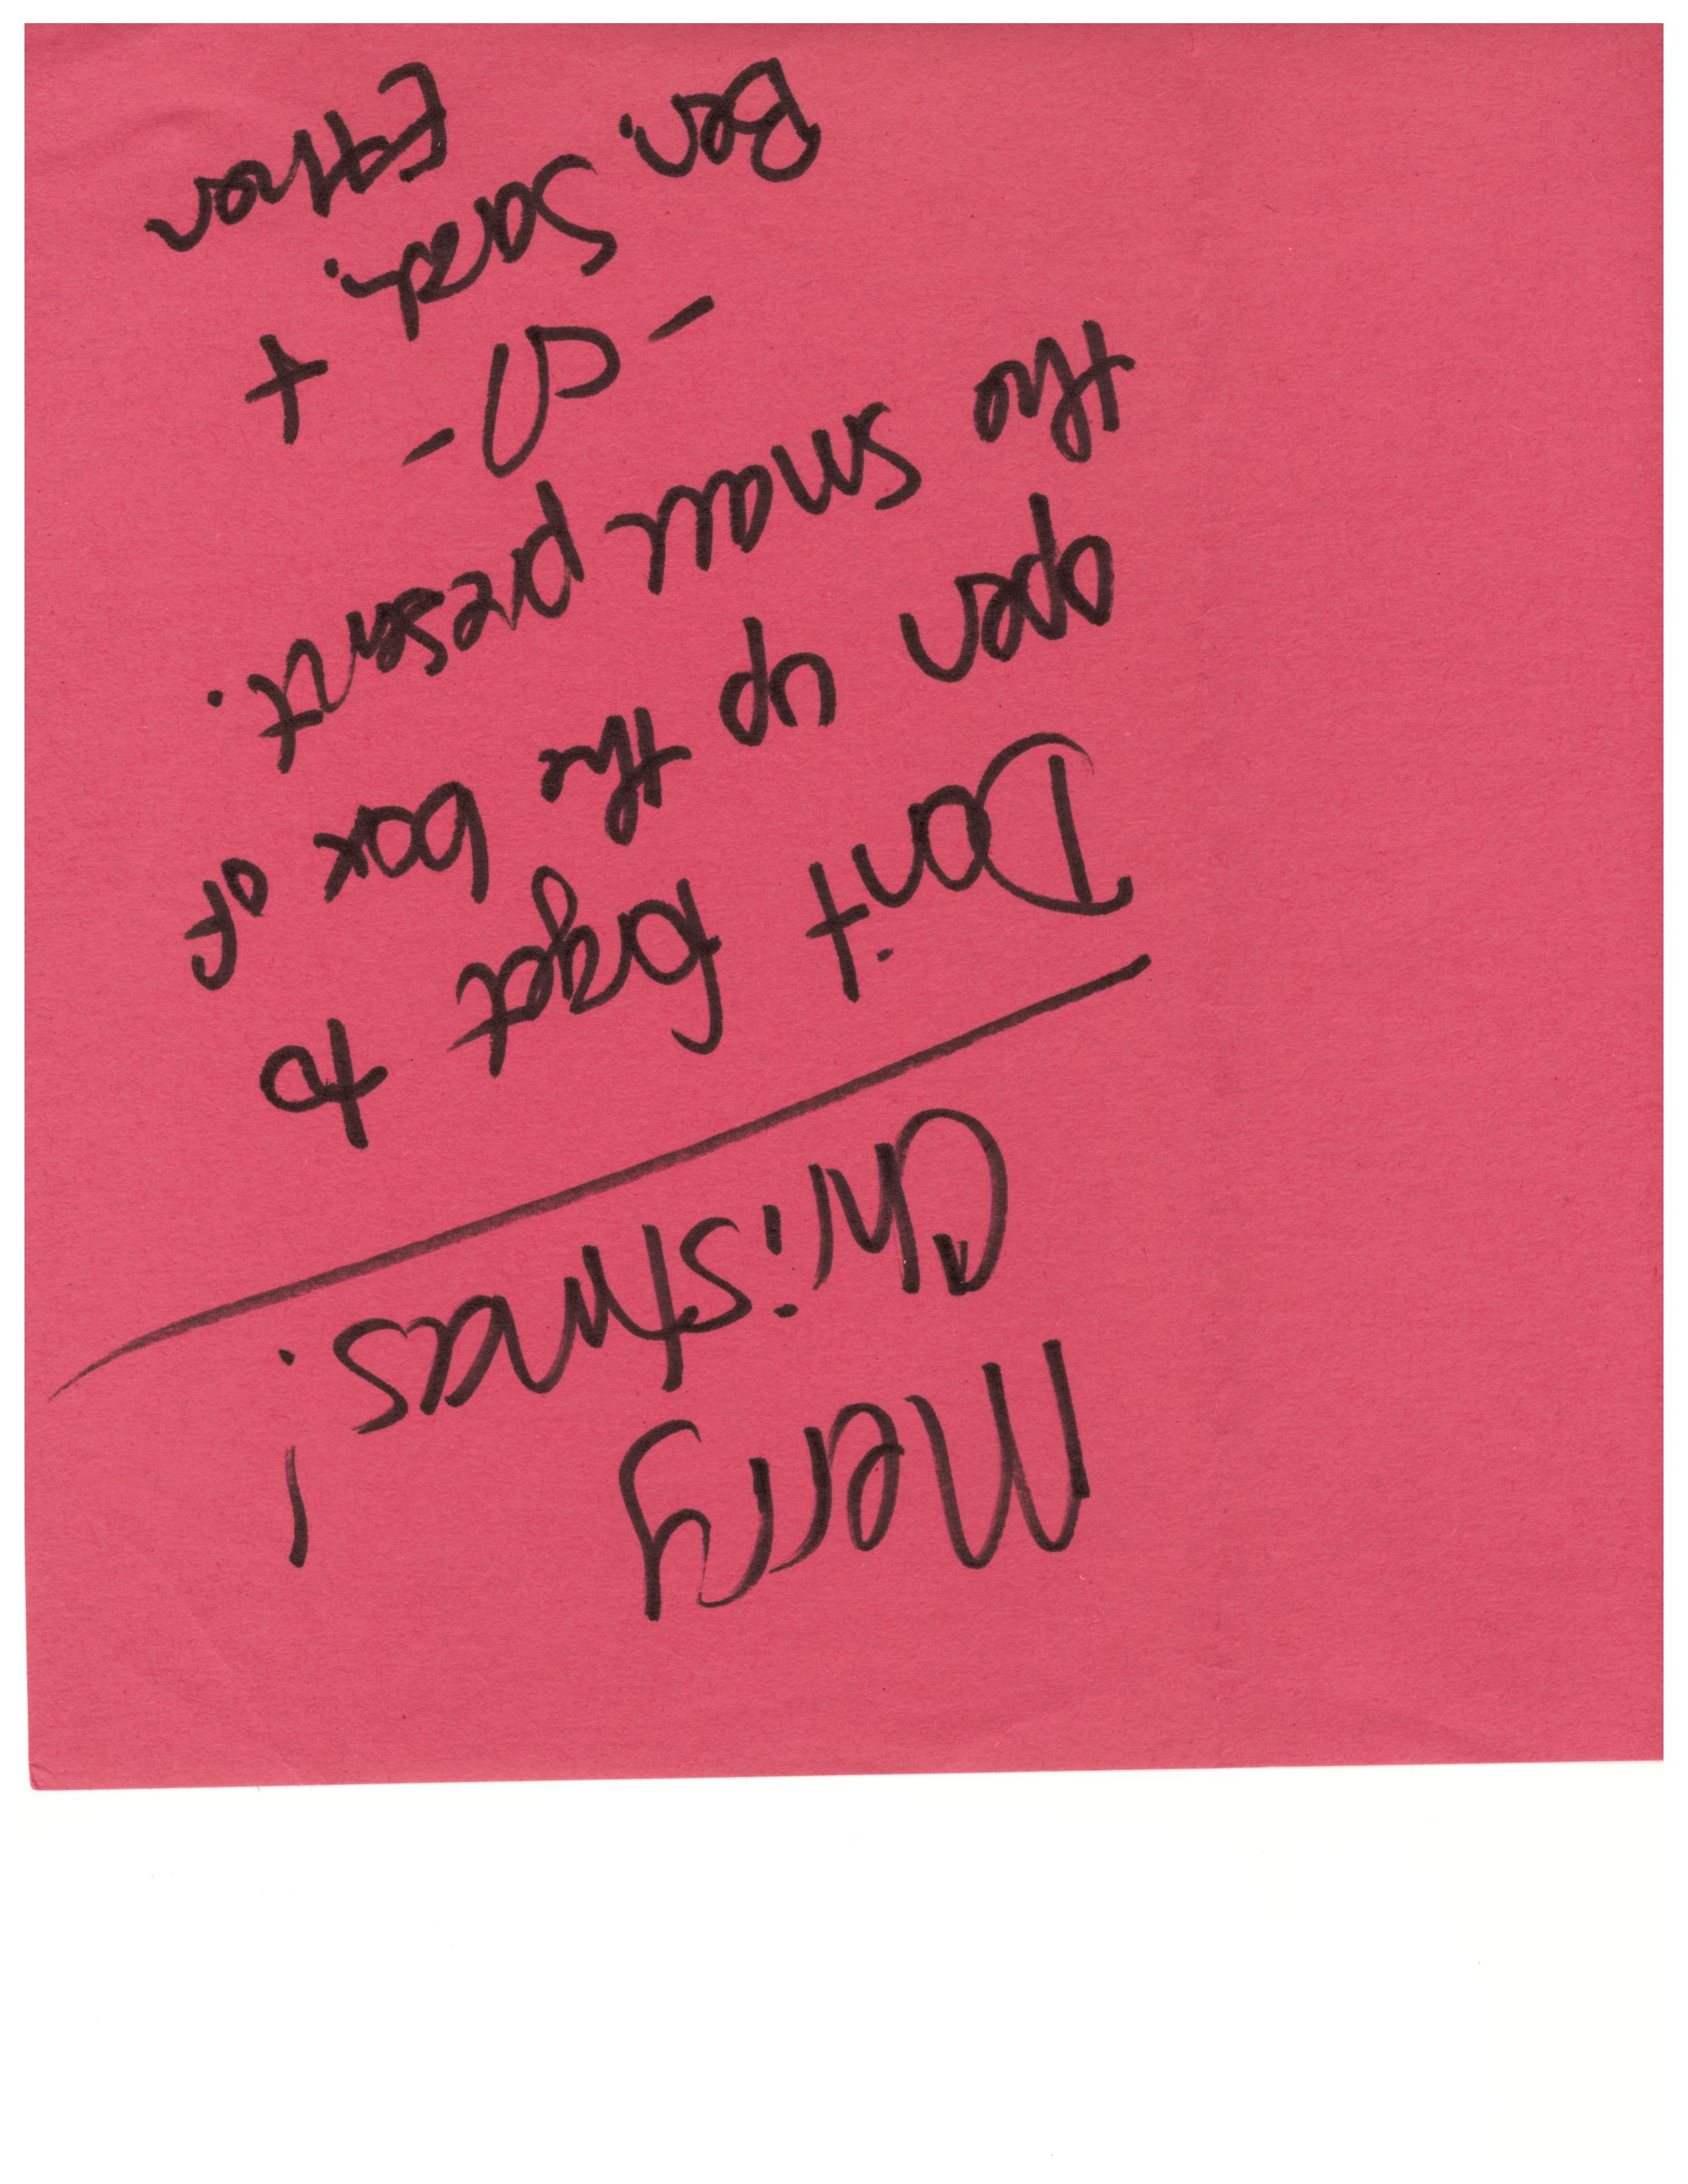 Merry
Christmas!
Don't forget to
open up the box of
the small present.
Ben. Sarah. +